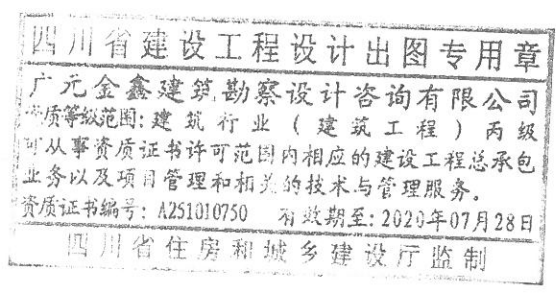 四川省建设工程设计出图专用章
广元金鑫建筑勘察设计咨询有限公司
资质等级范围:建筑行业(建筑工程)丙级
可从事资质证书许可范围内相应的建设工程总承包
业务以及项目管理和相关的技术与管理服务。
资质证书编号:A251010750 有效期至:2020年07月28日
四川省住房和城乡建设厅监制